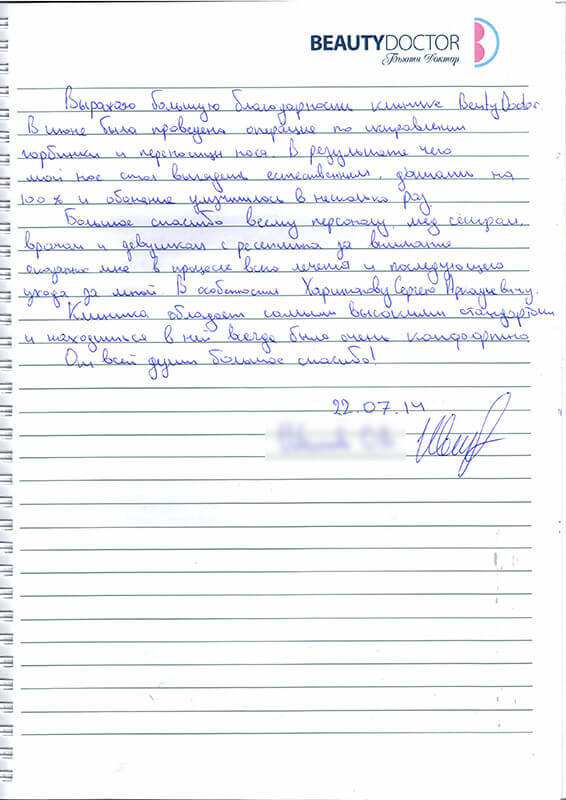 BEAUTYDOCTOR
Бьюти Доктор
Выражаю большую благодарность клинике BeautyDoctor
В июне была проведена операция по исправлению
горбинки и перегородки носа. В результате чего
мой нос стал выглядеть естественным, дышать на
100% и обоняние улучшилось в несколько раз
Большое спасибо всему персоналу, мед сёстрам,
врачам и девушкам с ресепшна за внимание
оказанное мне в процессе всего лечения и последующего
ухода за мной В особенности Сергею
Клиника обладает самыми высокими стандартами
и находиться в ней всегда было очень комфортно
От всей души большое спасибо!
22.07.14